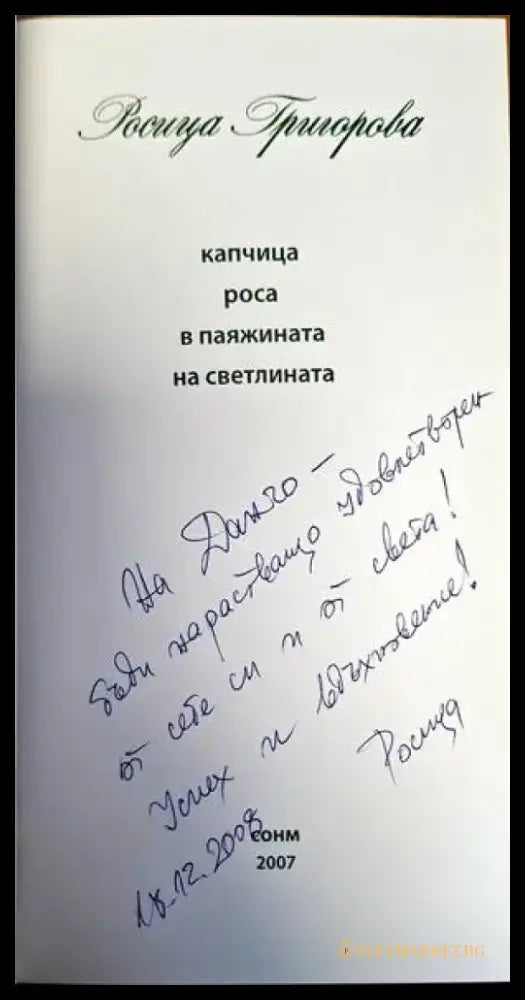 Росица Григорова
капчица
роса
в паяжината
на светлината
На Данчо –
бъди нарастващо удовлетворен
от себе си и от света!
Успех и вдъхновение!
Росица
18.12.2008
сонм
2007